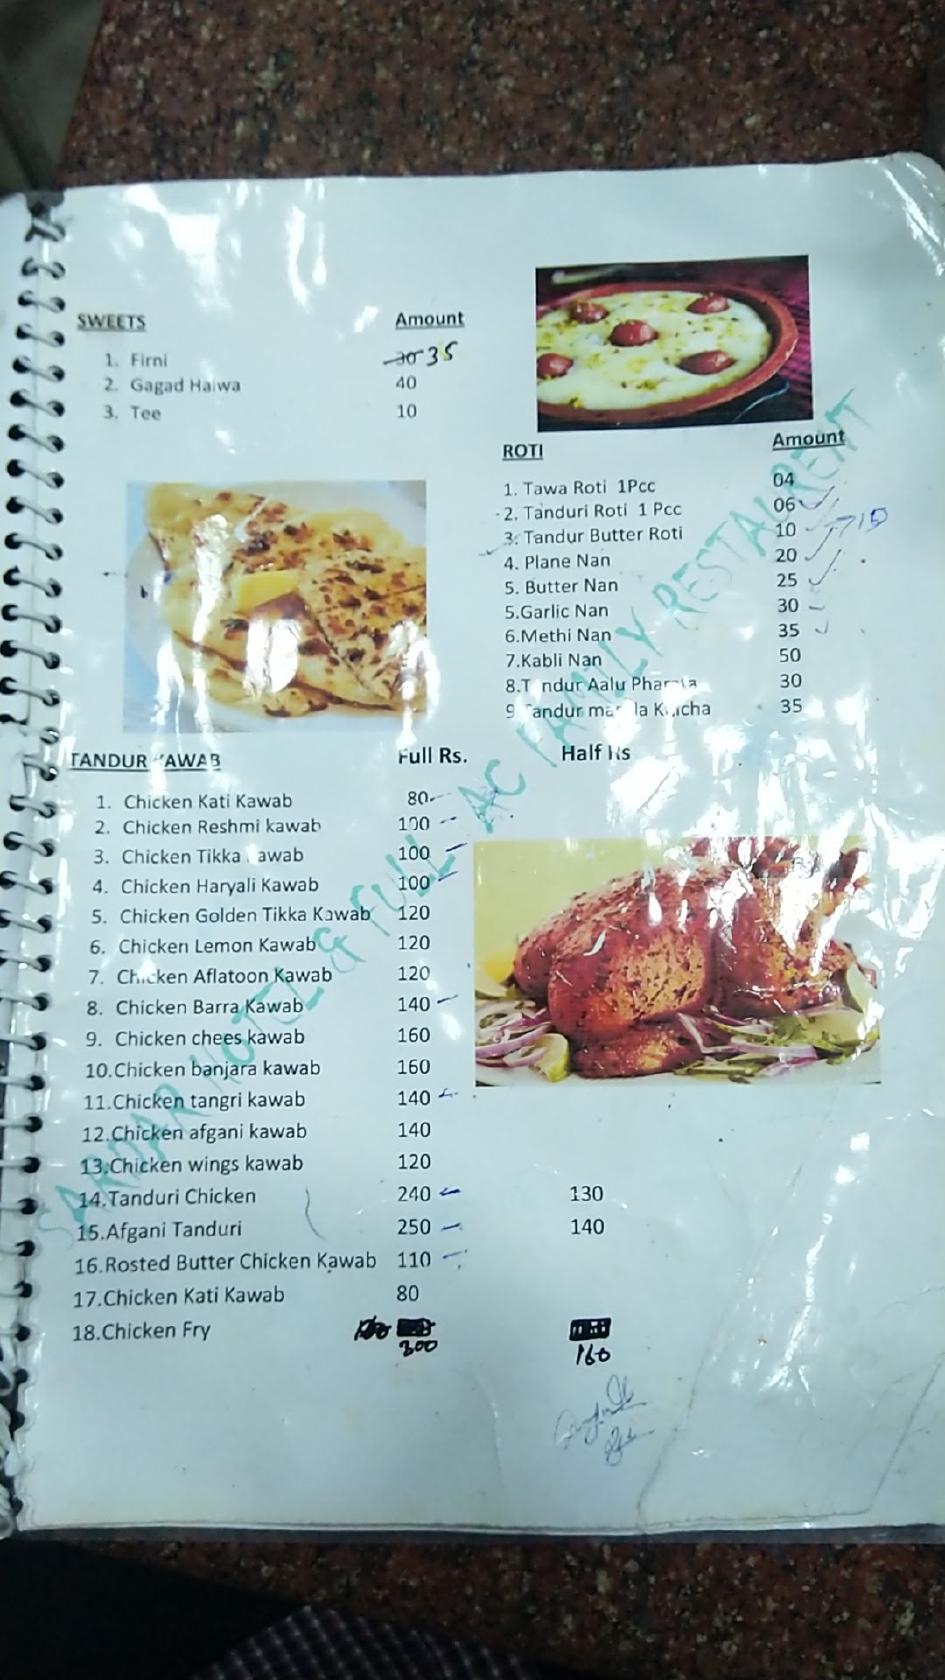 SWEETS Amount
1. Firni 30 35
2. Gagad Halwa 40
3. Tee 10
ROTI Amount
1. Tawa Roti 1Pcc 04
2. Tanduri Roti 1 Pcc 06
3. Tandur Butter Roti 10
4. Plane Nan 20
5. Butter Nan 25
5.Garlic Nan 30
6.Methi Nan 35
7.Kabli Nan 50
8.T ndur Aalu Pharata 30
9 Tandur masala Kulcha 35
TANDUR KAWAB Full Rs. Half Rs
1. Chicken Kati Kawab 80
2. Chicken Reshmi kawab 100
3. Chicken Tikka kawab 100
4. Chicken Haryali Kawab 100
5. Chicken Golden Tikka Kawab 120
6. Chicken Lemon Kawab 120
7. Chicken Aflatoon Kawab 120
8. Chicken Barra Kawab 140
9. Chicken chees kawab 160
10.Chicken banjara kawab 160
11.Chicken tangri kawab 140
12.Chicken afgani kawab 140
13.Chicken wings kawab 120
14.Tanduri Chicken 240 130
15.Afgani Tanduri 250 140
16.Rosted Butter Chicken Kawab 110
17.Chicken Kati Kawab 80
18.Chicken Fry 300 160
SARDAR HOTEL & FULL AC FAMILY RESTAURENT